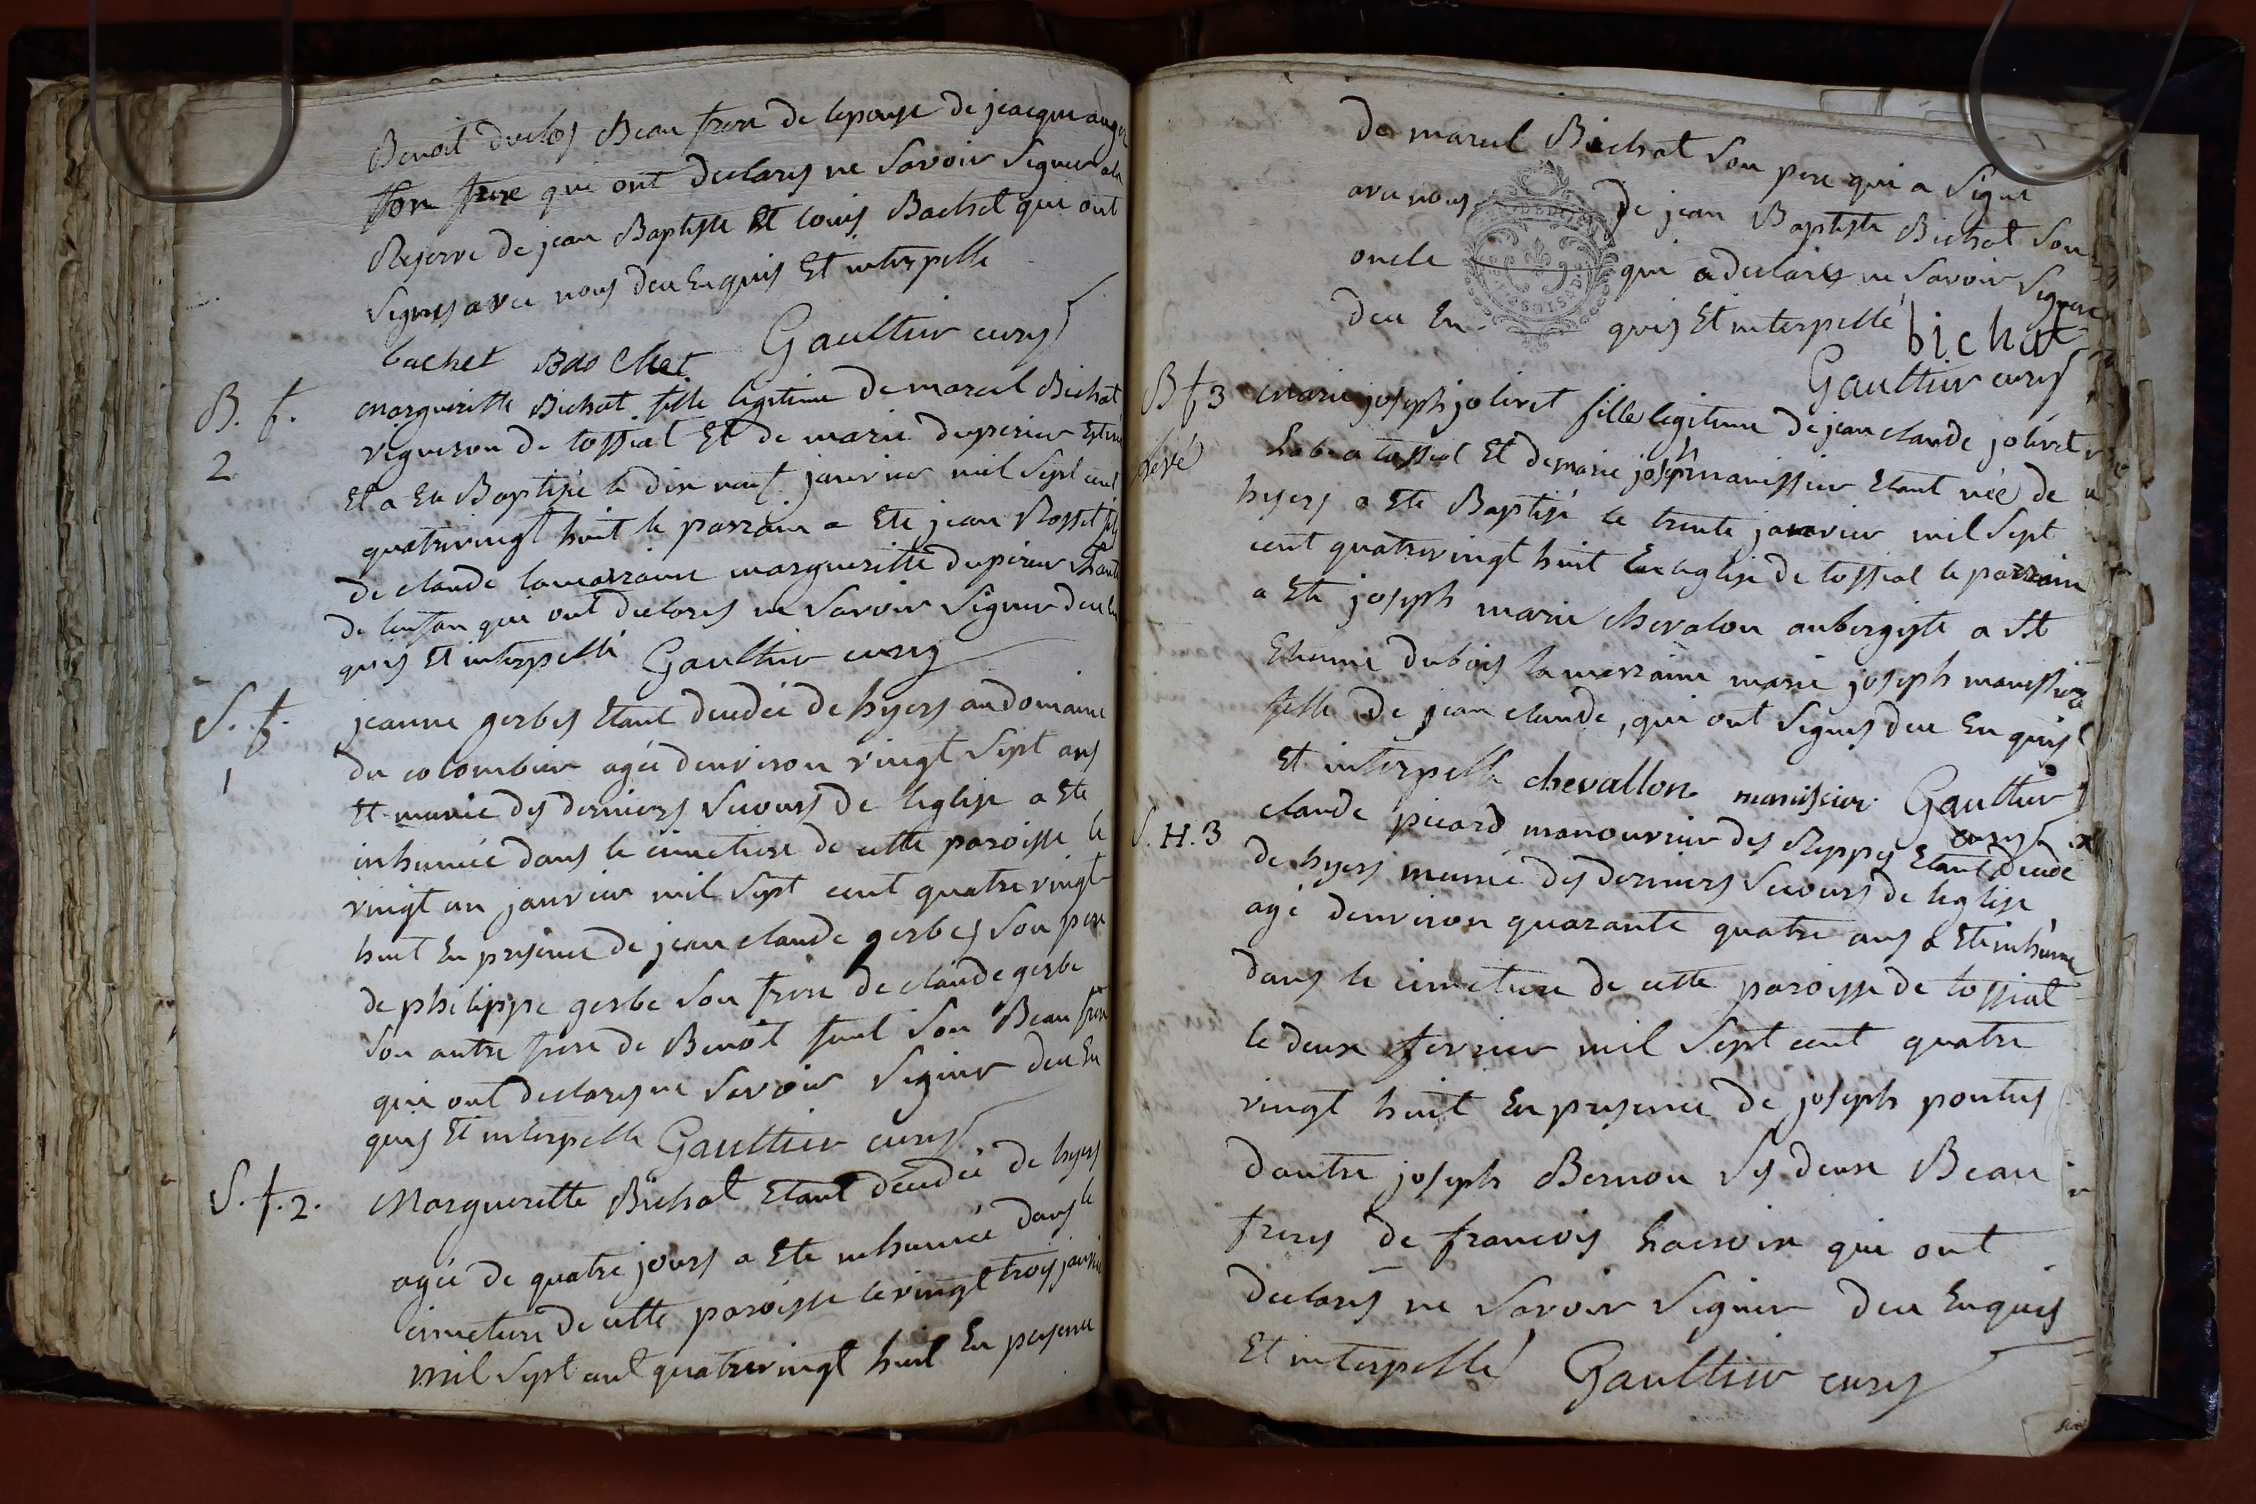 Benoit duclos Beau frere de lepouse de jeacque auger
son frere qui ont declarés ne Savoir Signer a la
Reserve de jean Baptiste Et louis Bachet qui ont
Signés avec nous deu Enquis Et interpelle
bachet Bachet Gaultier curés
B. f.
2
margueritte Bichat fille legitime de marcel Bichat
vigneron de tossiat Et de marie duperier Est né
Et a Eté Baptisée le dix neuf janvier mil Sept cent
quatrevingt huit le parrain a Eté jean Rosset fils
de claude la marraine margueritte duperier tante
de lenfan qui ont declarés ne Savoir Signer deu En
quis Et interpellé Gaultier curés
S. f.
1
jeanne gerbes Etant decedée de hyers au domaine
du colombier agée denviron vingt Sept ans
Et munie des derniers Secours de leglise a Eté
inhumée dans le cimetiere de cette paroisse le
vingt un janvier mil Sept cent quatre vingt
huit En presence de jean claude gerbes Son pere
de philippe gerbe Son frere de claude gerbe
Son autre frere de Benoit Son Beau frere
qui ont declarés ne Savoir Signer deu En
quis Et interpelle Gaultier curés
S. f. 2.
Margueritte Bichat Etant decedée de hyers
agée de quatre jours a Eté inhumée dans le
cimetiere de cette paroisse le vingt trois janvier
mil Sept cent quatrevingt huit En presence
de marcel Bichat Son pere qui a Signé
avec nous de jean Baptiste Bichat Son
oncle qui a declarés ne Savoir Signer
deu En quis Et interpellé bichat
Gaultier curés
B f 3
marie joseph jolivet fille legitime de jean claude jolivet
hab. a tossiat Et de marie joseph manissier Etant née de
hyers a Eté Baptisé le trente janvier mil Sept
cent quatrevingt huit En leglise de tossiat le parrain
a Eté joseph marie chevalon aubergiste a St
Etienne dubois la marraine marie joseph manissier
fille de jean claude, qui ont Signés deu En quis
Et interpelle chevallon manissier Gaultier
curés
S. H. 3
claude picard manouvrier des Rippes Etant decedé
de hyers munie des derniers Secours de leglise
agé denviron quarante quatre ans a Eté inhumé
dans le cimetiere de cette paroisse de tossiat
le deux fevrier mil Sept cent quatre
vingt huit En presence de joseph pontus
dautre joseph Bernon Ses deux Beau
freres de francois qui ont
declarés ne Savoir Signer deu Enquis
Et interpellé Gaultier curés